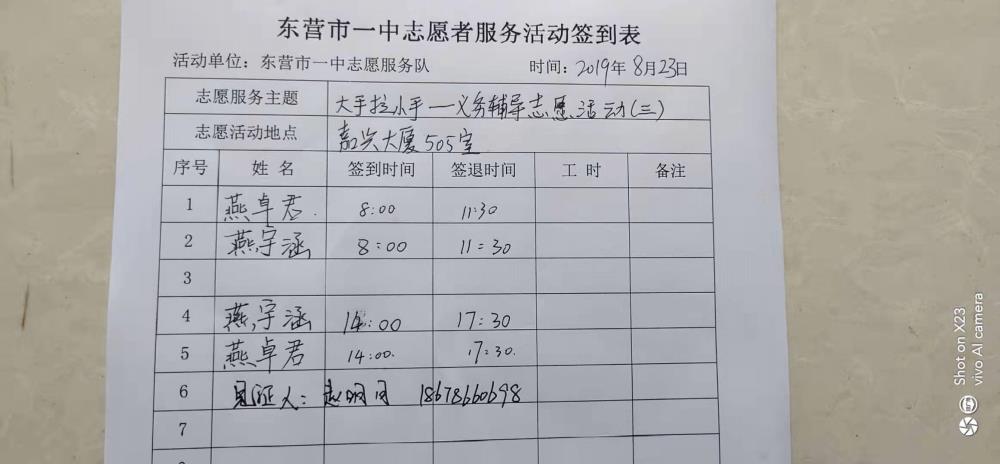 东营市一中志愿者服务活动签到表
活动单位：东营市一中志愿服务队 时间：2019年8月23日
志愿服务主题 大手拉小手—义务辅导志愿活动(三)
志愿活动地点 嘉兴大厦505室
序号 姓 名 签到时间 签退时间 工 时 备注
1 燕卓君. 8:00 11:30
2 燕宇涵 8:00 11:30
3
4 燕宇涵 14:00 17:30
5 燕卓君 14:00. 17:30.
6 见证人： 18678660698
7
Shot on X23
vivo AI camera